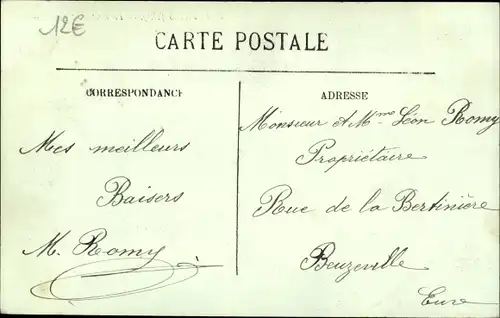 12E
CARTE POSTALE
CORRESPONDANCE
Mes meilleurs
Baisers
M. Romy
ADRESSE
Monsieur et Mme Léon Romy
Propriétaire
Rue de la Bertinière
Beuzeville
Eure